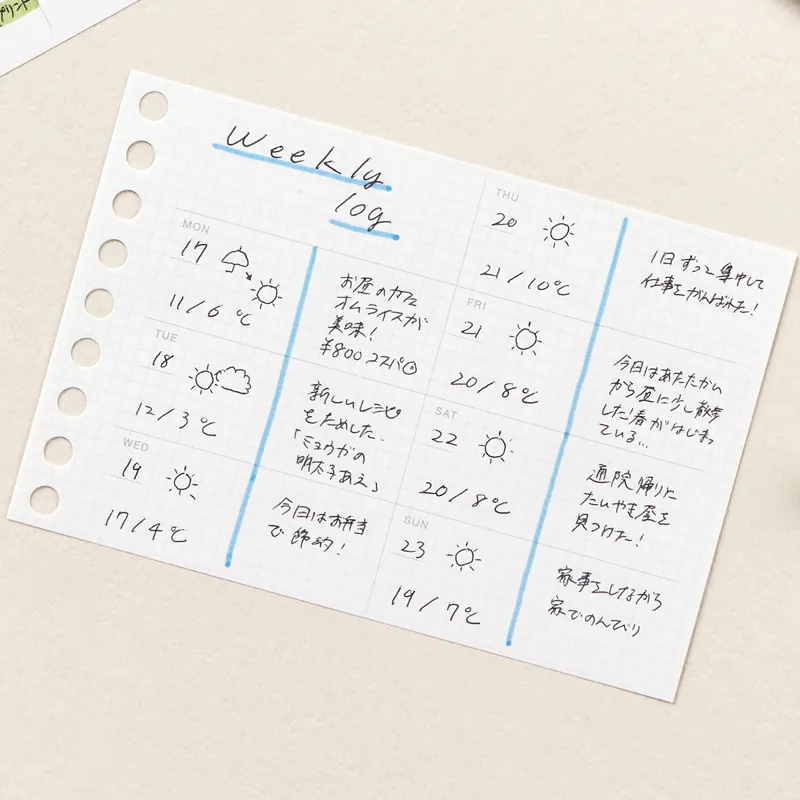 プリント
Weekly
log
MON
17
11/6℃
お昼のカフェ
オムライスが
美味!
¥800 コスパ◎
TUE
18
12/3℃
新しいレシピ
をためした。
「ミョウガの
明太子あえ」
WED
19
17/4℃
今日はお弁当
で節約!
THU
20
21/10℃
1日ずっと集中して
仕事をがんばれた!
FRI
21
20/8℃
今日はあたたかい
から昼に少し散歩
した!春がはじまっ
ている...
SAT
22
20/8℃
通院帰りに
たいやき屋を
見つけた!
SUN
23
19/7℃
家事をしながら
家でのんびり